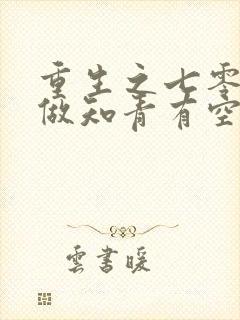 重生之七零
做知青有空
雲書暖